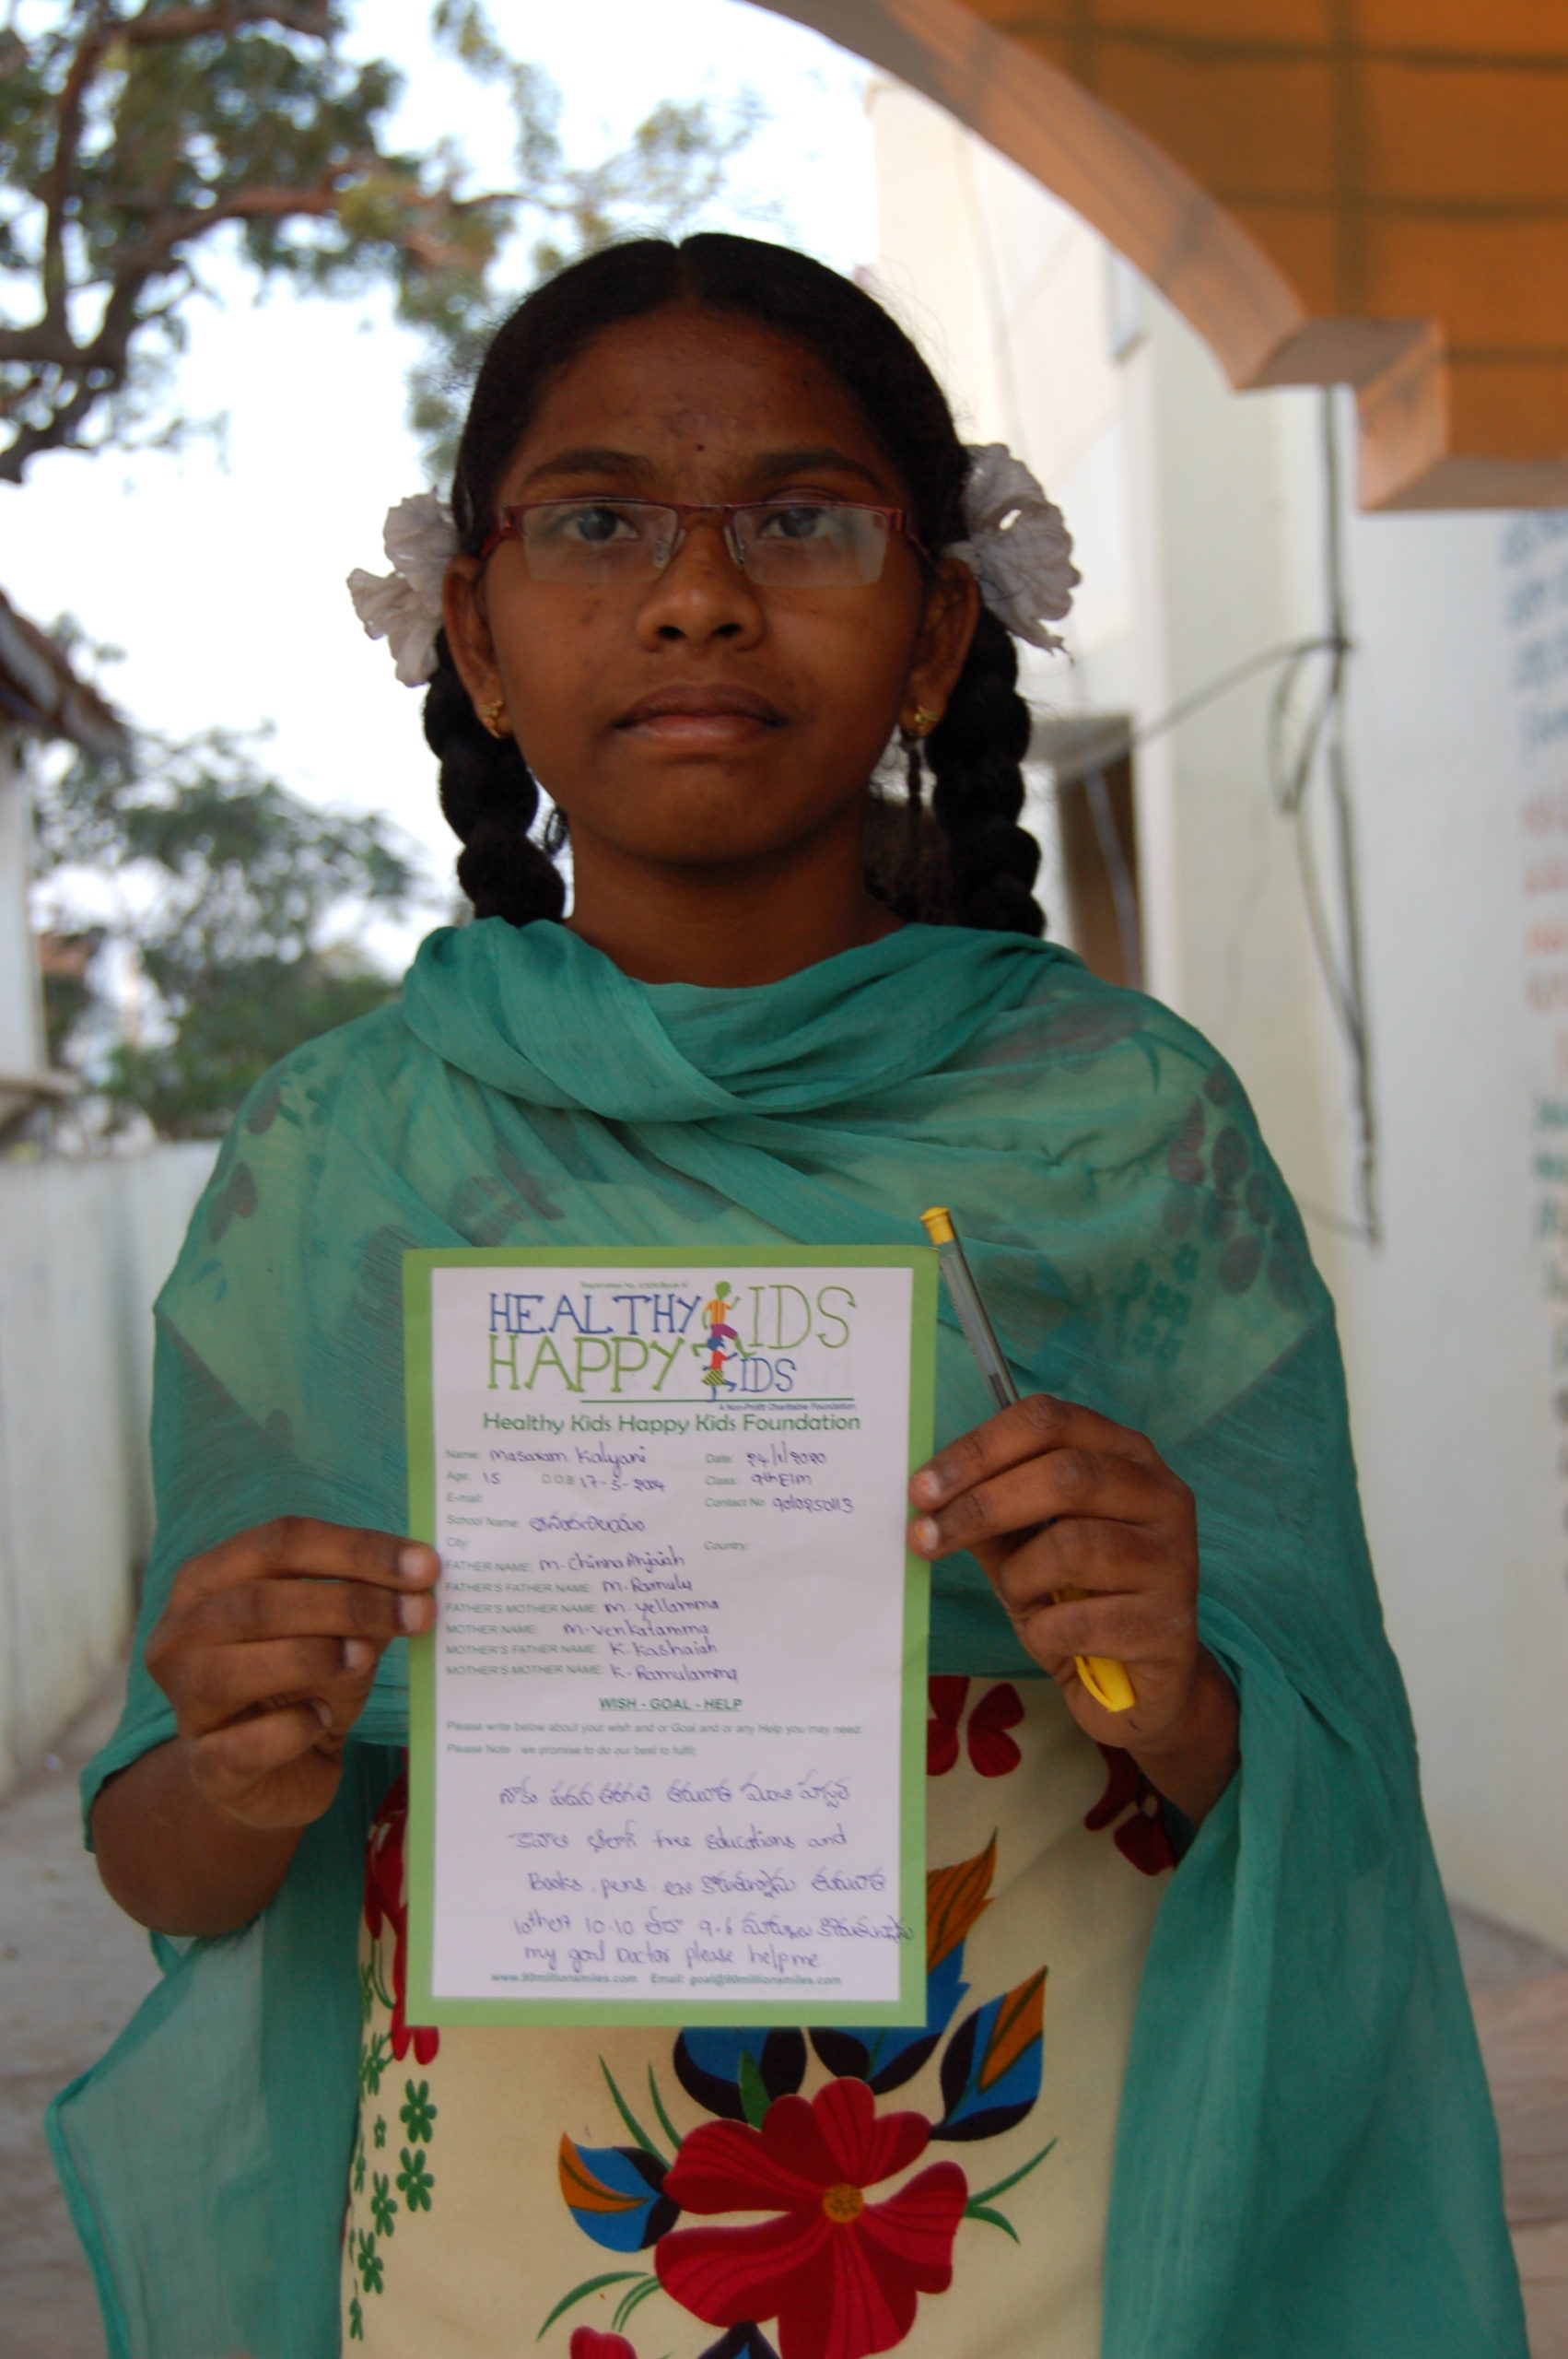 HEALTHY KIDS
HAPPY KIDS
A Non-Profit Charitable Foundation
Healthy Kids Happy Kids Foundation
Name: Masaram Kalyani Date: 24/1/2020
Age: 15 D.O.B 17-5-2004 Class: 9th E/m
E-mail: Contact No 9010250113
School Name:
City: Country:
FATHER NAME: M. Chinna Anjaiah
FATHER'S FATHER NAME: M. Ramulu
FATHER'S MOTHER NAME: M. Yellamma
MOTHER NAME: M. Venkatamma
MOTHER'S FATHER NAME: K. Kashaiah
MOTHER'S MOTHER NAME: K. Ramulamma
WISH - GOAL - HELP
Please write below about your wish and or Goal and or any Help you may need:
Please Note : we promise to do our best to fulfil:
నాకు పదవ తరగతి తరువాత మంచి హాస్టల్
కావాలి free Educations and
Books, pens కోరుతున్నాను తరువాత
10th లో 10.10 లేదా 9.6 మార్కులు కోరుతున్నాను
my goal Doctor please help me
www.90millionsmiles.com Email: goal@90millionsmiles.com